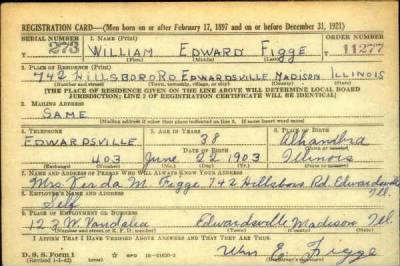 REGISTRATION CARD—(Men born on or after February 17, 1897 and on or before December 31, 1921)
SERIAL NUMBER 1. NAME (Print) ORDER NUMBER
273 WILLIAM EDWARD FIGGE 11277
(First) (Middle) (Last)
2. PLACE OF RESIDENCE (Print)
742 HILLSBORO RD EDWARDSVILLE MADISON ILLINOIS
(Number and street) (Town, township, village, or city) (County) (State)
[THE PLACE OF RESIDENCE GIVEN ON THE LINE ABOVE WILL DETERMINE LOCAL BOARD
JURISDICTION; LINE 2 OF REGISTRATION CERTIFICATE WILL BE IDENTICAL]
3. MAILING ADDRESS
SAME
[Mailing address if other than place indicated on line 2. If same insert word same]
4. TELEPHONE 5. AGE IN YEARS 6. PLACE OF BIRTH
EDWARDSVILLE 38 Alhambra
DATE OF BIRTH
403 June 22 1903 Illinois
(Exchange) (Number) (Mo.) (Day) (Yr.) (State or country)
7. NAME AND ADDRESS OF PERSON WHO WILL ALWAYS KNOW YOUR ADDRESS
Mrs. M. Figge, 742 Hillsboro Rd. Edwardsville Ill.
8. EMPLOYER'S NAME AND ADDRESS
Self
9. PLACE OF EMPLOYMENT OR BUSINESS
W. Vandalia Edwardsville Madison Ill.
(Number and street or R. F. D. number) (Town) (County) (State)
I AFFIRM THAT I HAVE VERIFIED ABOVE ANSWERS AND THAT THEY ARE TRUE.
D. S. S. Form 1
(Revised 1-1-42) (over) GPO 16—21630-2
Wm E. Figge
(Registrant's signature)